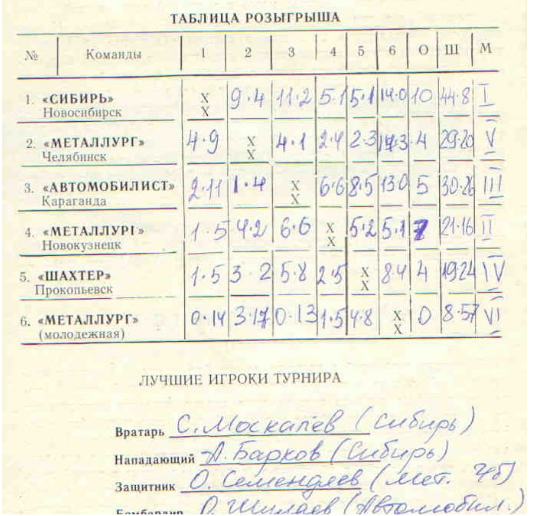 ТАБЛИЦА РОЗЫГРЫША
№ Команды 1 2 3 4 5 6 О Ш М
1. «СИБИРЬ» Новосибирск X X 9-4 11-2 5-1 5-1 14-0 10 44-8 I
2. «МЕТАЛЛУРГ» Челябинск 4-9 X X 4-1 2-4 2-3 17-3 4 29-20 V
3. «АВТОМОБИЛИСТ» Караганда 2-11 1-4 X X 6-6 8-5 13-0 5 30-26 III
4. «МЕТАЛЛУРГ» Новокузнецк 1-5 4-2 6-6 X X 5-2 5-1 7 21-16 II
5. «ШАХТЕР» Прокопьевск 1-5 3-2 5-8 2-5 X X 8-4 4 19-24 IV
6. «МЕТАЛЛУРГ» (молодежная) 0-14 3-17 0-13 1-5 4-8 X X 0 8-57 VI
ЛУЧШИЕ ИГРОКИ ТУРНИРА
Вратарь С. Москалев (Сибирь)
Нападающий А. Барков (Сибирь)
Защитник О. Семендяев (Мет. Чб)
Бомбардир О. Шилаев (Автомобил.)